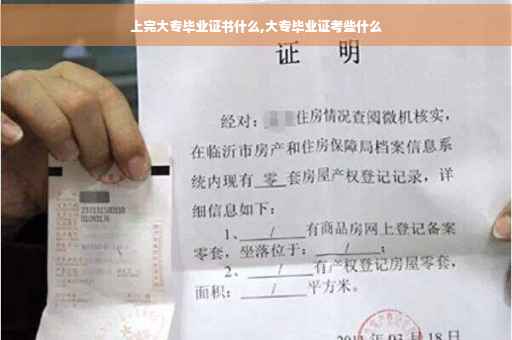 上完大专毕业证书什么,大专毕业证考些什么
证 明
经对: 住房情况查阅微机核实,
在临沂市房产和住房保障局档案信息系
统内现有 零 套房屋产权登记记录,详
细信息如下:
1、 / 有商品房网上登记备案
零套,坐落位于: / ;
2、 / 有产权登记房屋零套,
面积: / 平方米。